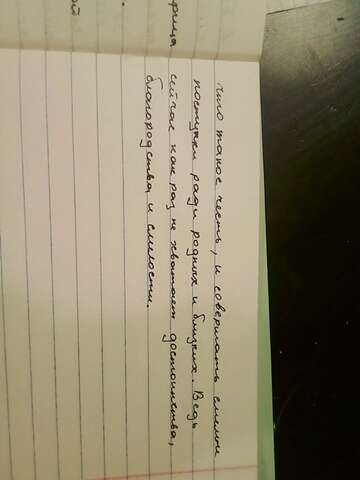 что такое честь, и совершать смелые
поступки ради родных и близких. Ведь
сейчас как раз не хватает достоинства,
благородства и смелости.